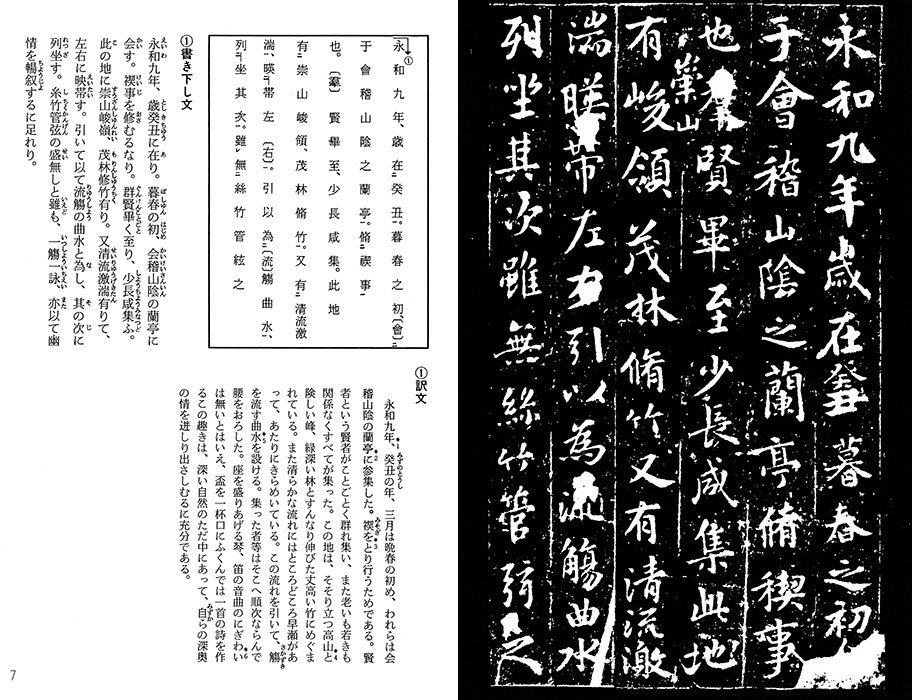 永和九年歳在癸丑暮春之初
于會稽山陰之蘭亭脩稧事
也羣賢畢至少長咸集此地
有崇山峻領茂林脩竹又有清流激
湍暎帶左右引以為流觴曲水
列坐其次雖無絲竹管弦之
①
永和九年、歳在癸丑。暮春之初、〔會〕
于會稽山陰之蘭亭。脩禊事
也。〔羣〕賢畢至、少長咸集。此地
有崇山峻領、茂林脩竹。又有清流激
湍、暎帶左〔右〕。引以為〔流〕觴曲水、
列坐其次。雖無絲竹管絃之
①書き下し文
永和九年、歳癸丑に在り。暮春の初、会稽山陰の蘭亭に
会す。禊事を修むるなり。群賢畢く至り、少長咸集ふ。
此の地に崇山峻嶺、茂林修竹有り。又清流激湍有りて、
左右に映帯す。引いて以て流觴の曲水と為し、其の次に
列坐す。糸竹管弦の盛無しと雖も、一觴一詠、亦以て幽
情を暢叙するに足れり。
①訳文
永和九年、癸丑の年、三月は晩春の初め、われらは会
稽山陰の蘭亭に参集した。禊をとり行うためである。賢
者という賢者がことごとく群れ集い、また老いも若きも
関係なくすべてが集った。この地は、そそり立つ高山と
険しい峰、緑深い林とすんなり伸びた丈高い竹にめぐま
れている。また清らかな流れにはところどころ早瀬があ
って、あたりにきらめいている。この流れを引いて、觴
を流す曲水を設ける。集った者等はそこへ順次ならんで
腰をおろした。座を盛りあげる琴、笛の音曲のにぎわい
は無いとはいえ、盃を一杯口にふくんでは一首の詩を作
るこの趣きは、深い自然のただ中にあって、自らの深奥
の情を迸しり出さしむるに充分である。
7